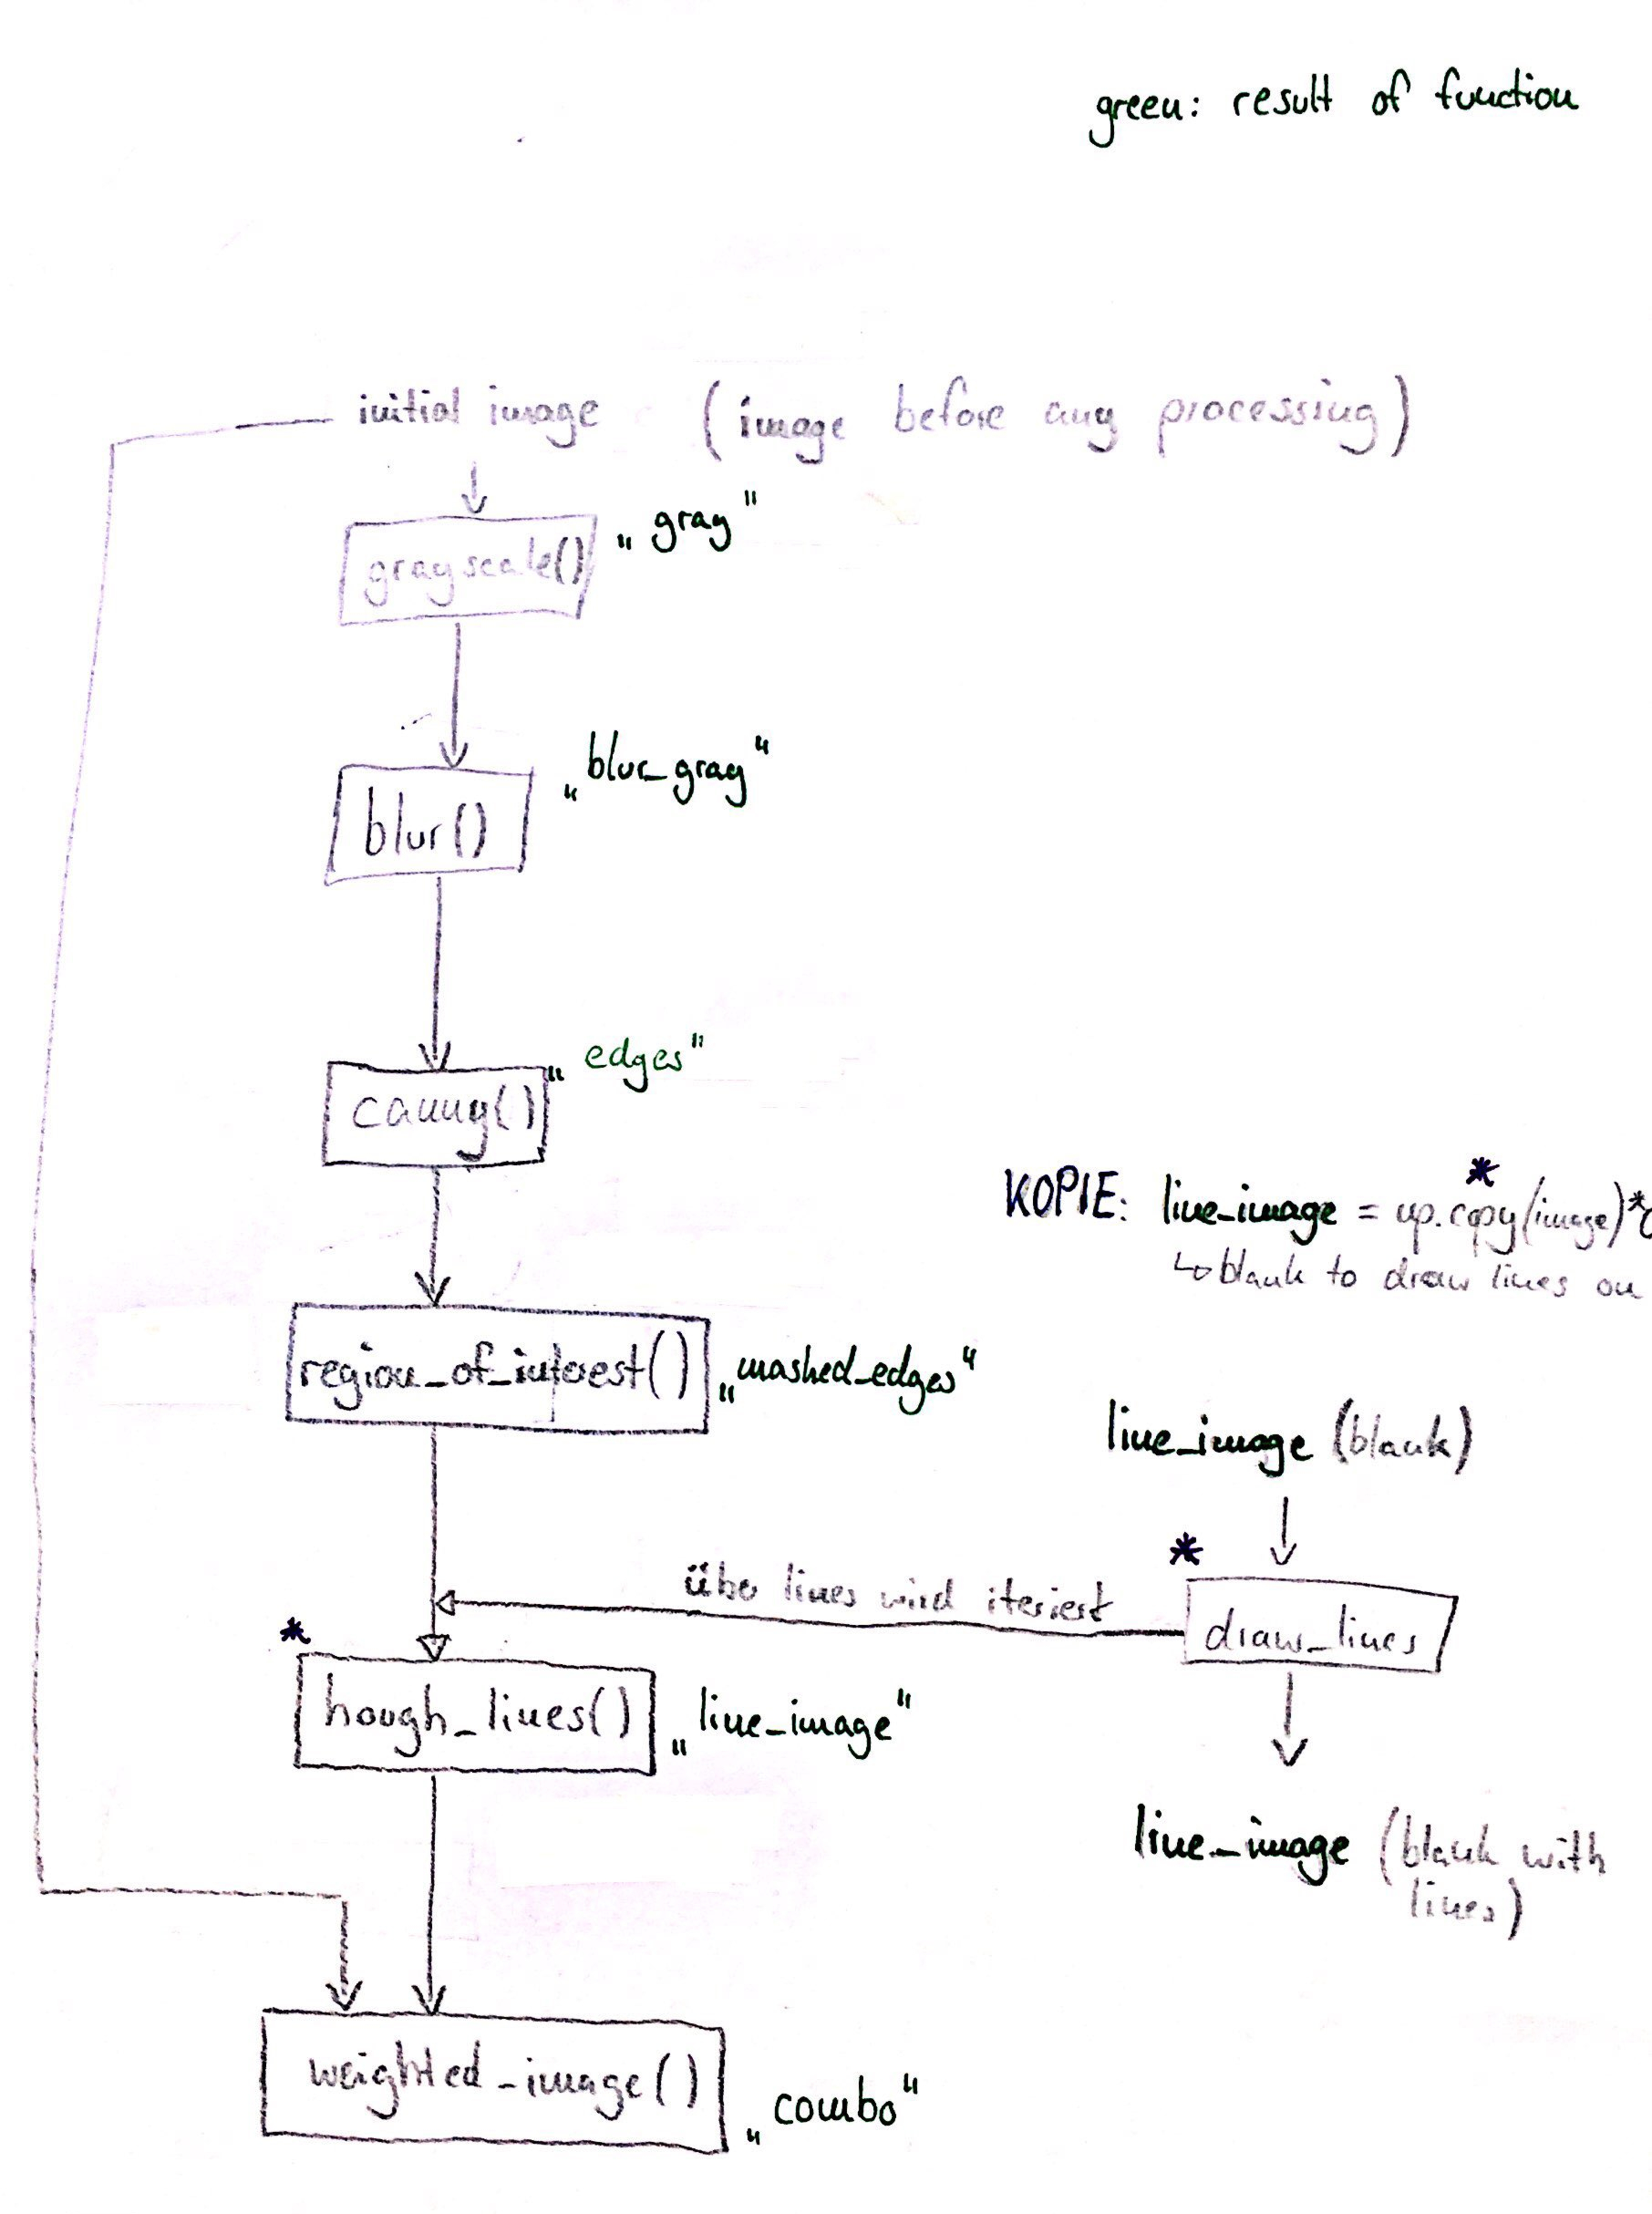 green: result of function
initial image (image before any processing)
grayscale() „gray"
blur() „blur_gray"
canny() „edges"
KOPIE: line_image = np.copy(image)*
↳ blank to draw lines on
region_of_interest() „mashed_edges"
line_image (blank)
* über lines wird iteriert
draw_lines
* hough_lines() „line_image"
line_image (blank with
lines)
weighted_image() „combo"